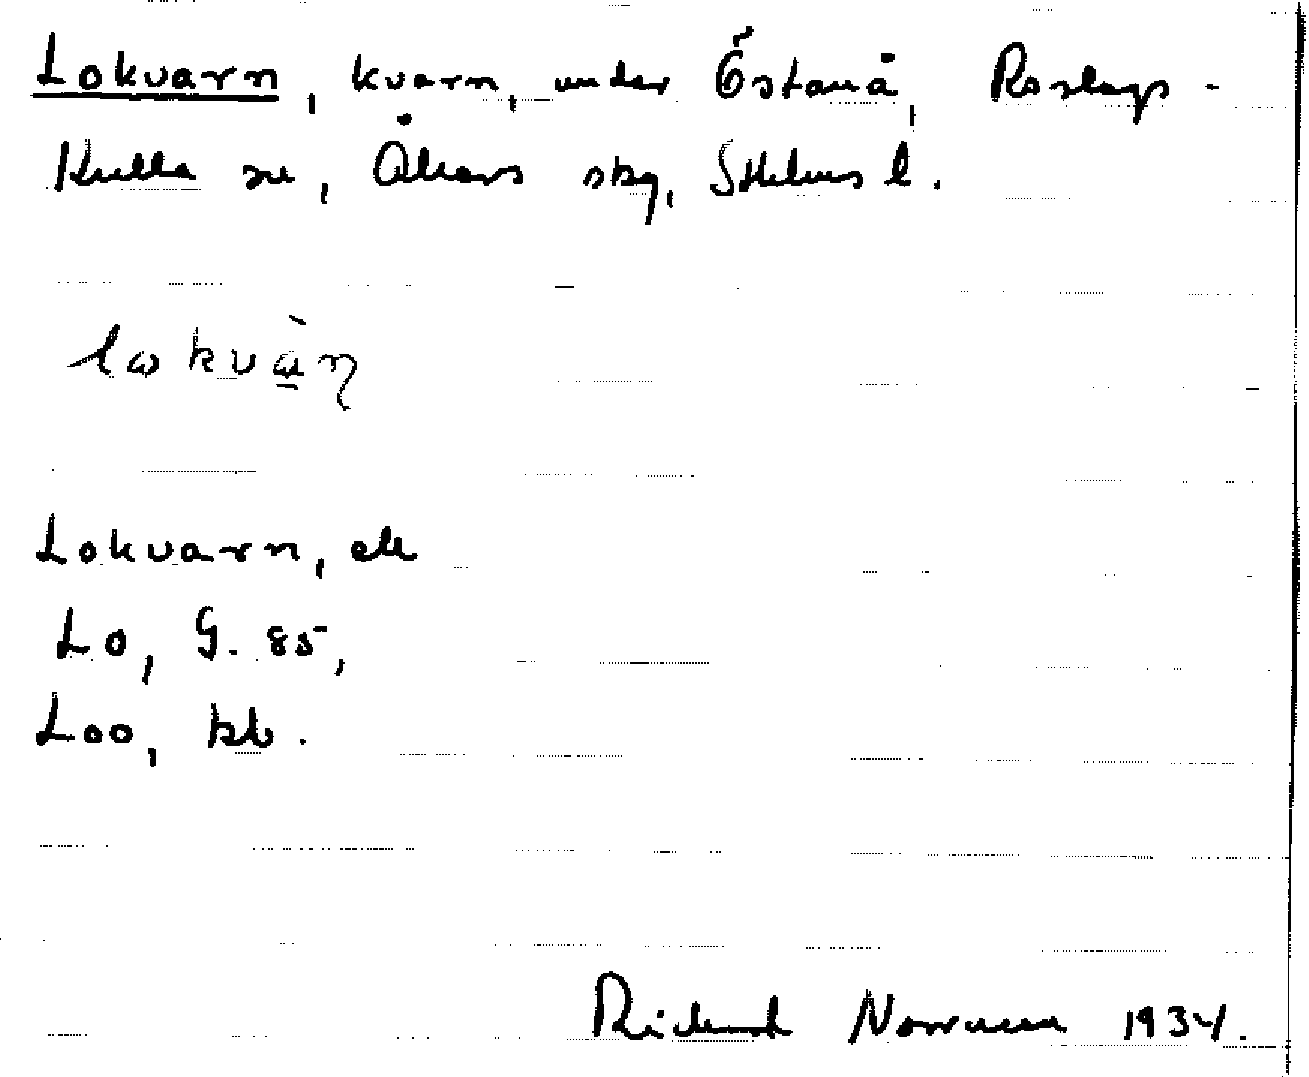 Lokvarn, kvarn, under Östanå, Roslags-
Kulla sn, Åkers skg, Sthlms l.
lωkvὰ̱ɳ
Lokvarn, ek
Lo, G. 85,
Loo, kb.
Rickard Norrman 1934.